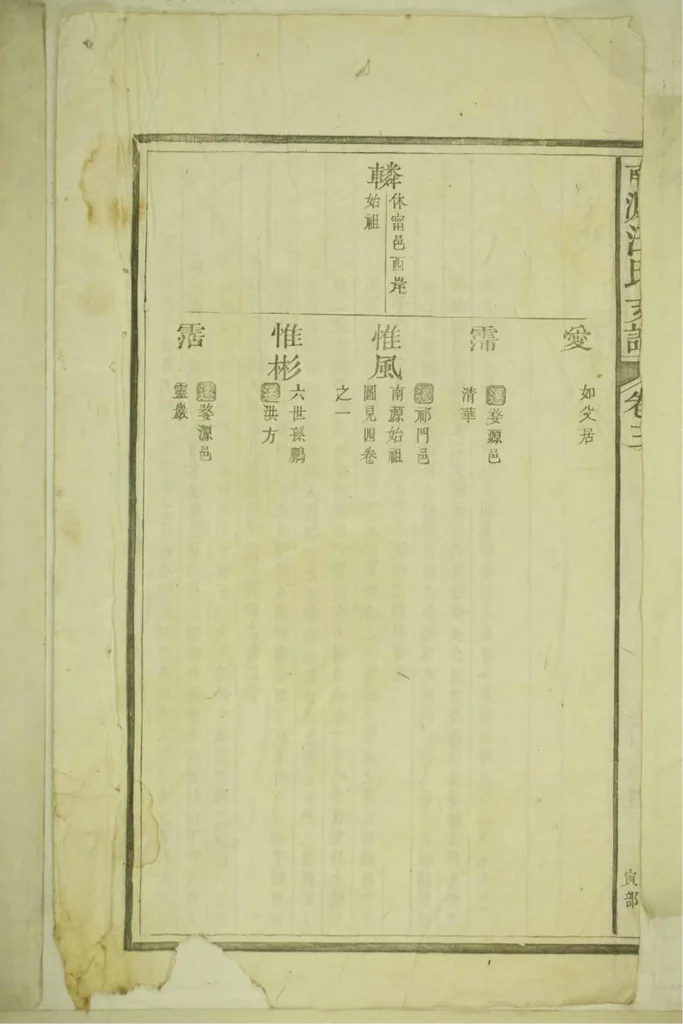 南源汪氏支譜
卷三
寅部
轔
休甯邑西岸
始祖
愛
如父居
霈
遷婺源邑
清華
惟風
遷祁門邑
南源始祖
圖見四卷
之一
惟彬
六世孫鵬
遷洪方
霑
遷婺源邑
靈巖